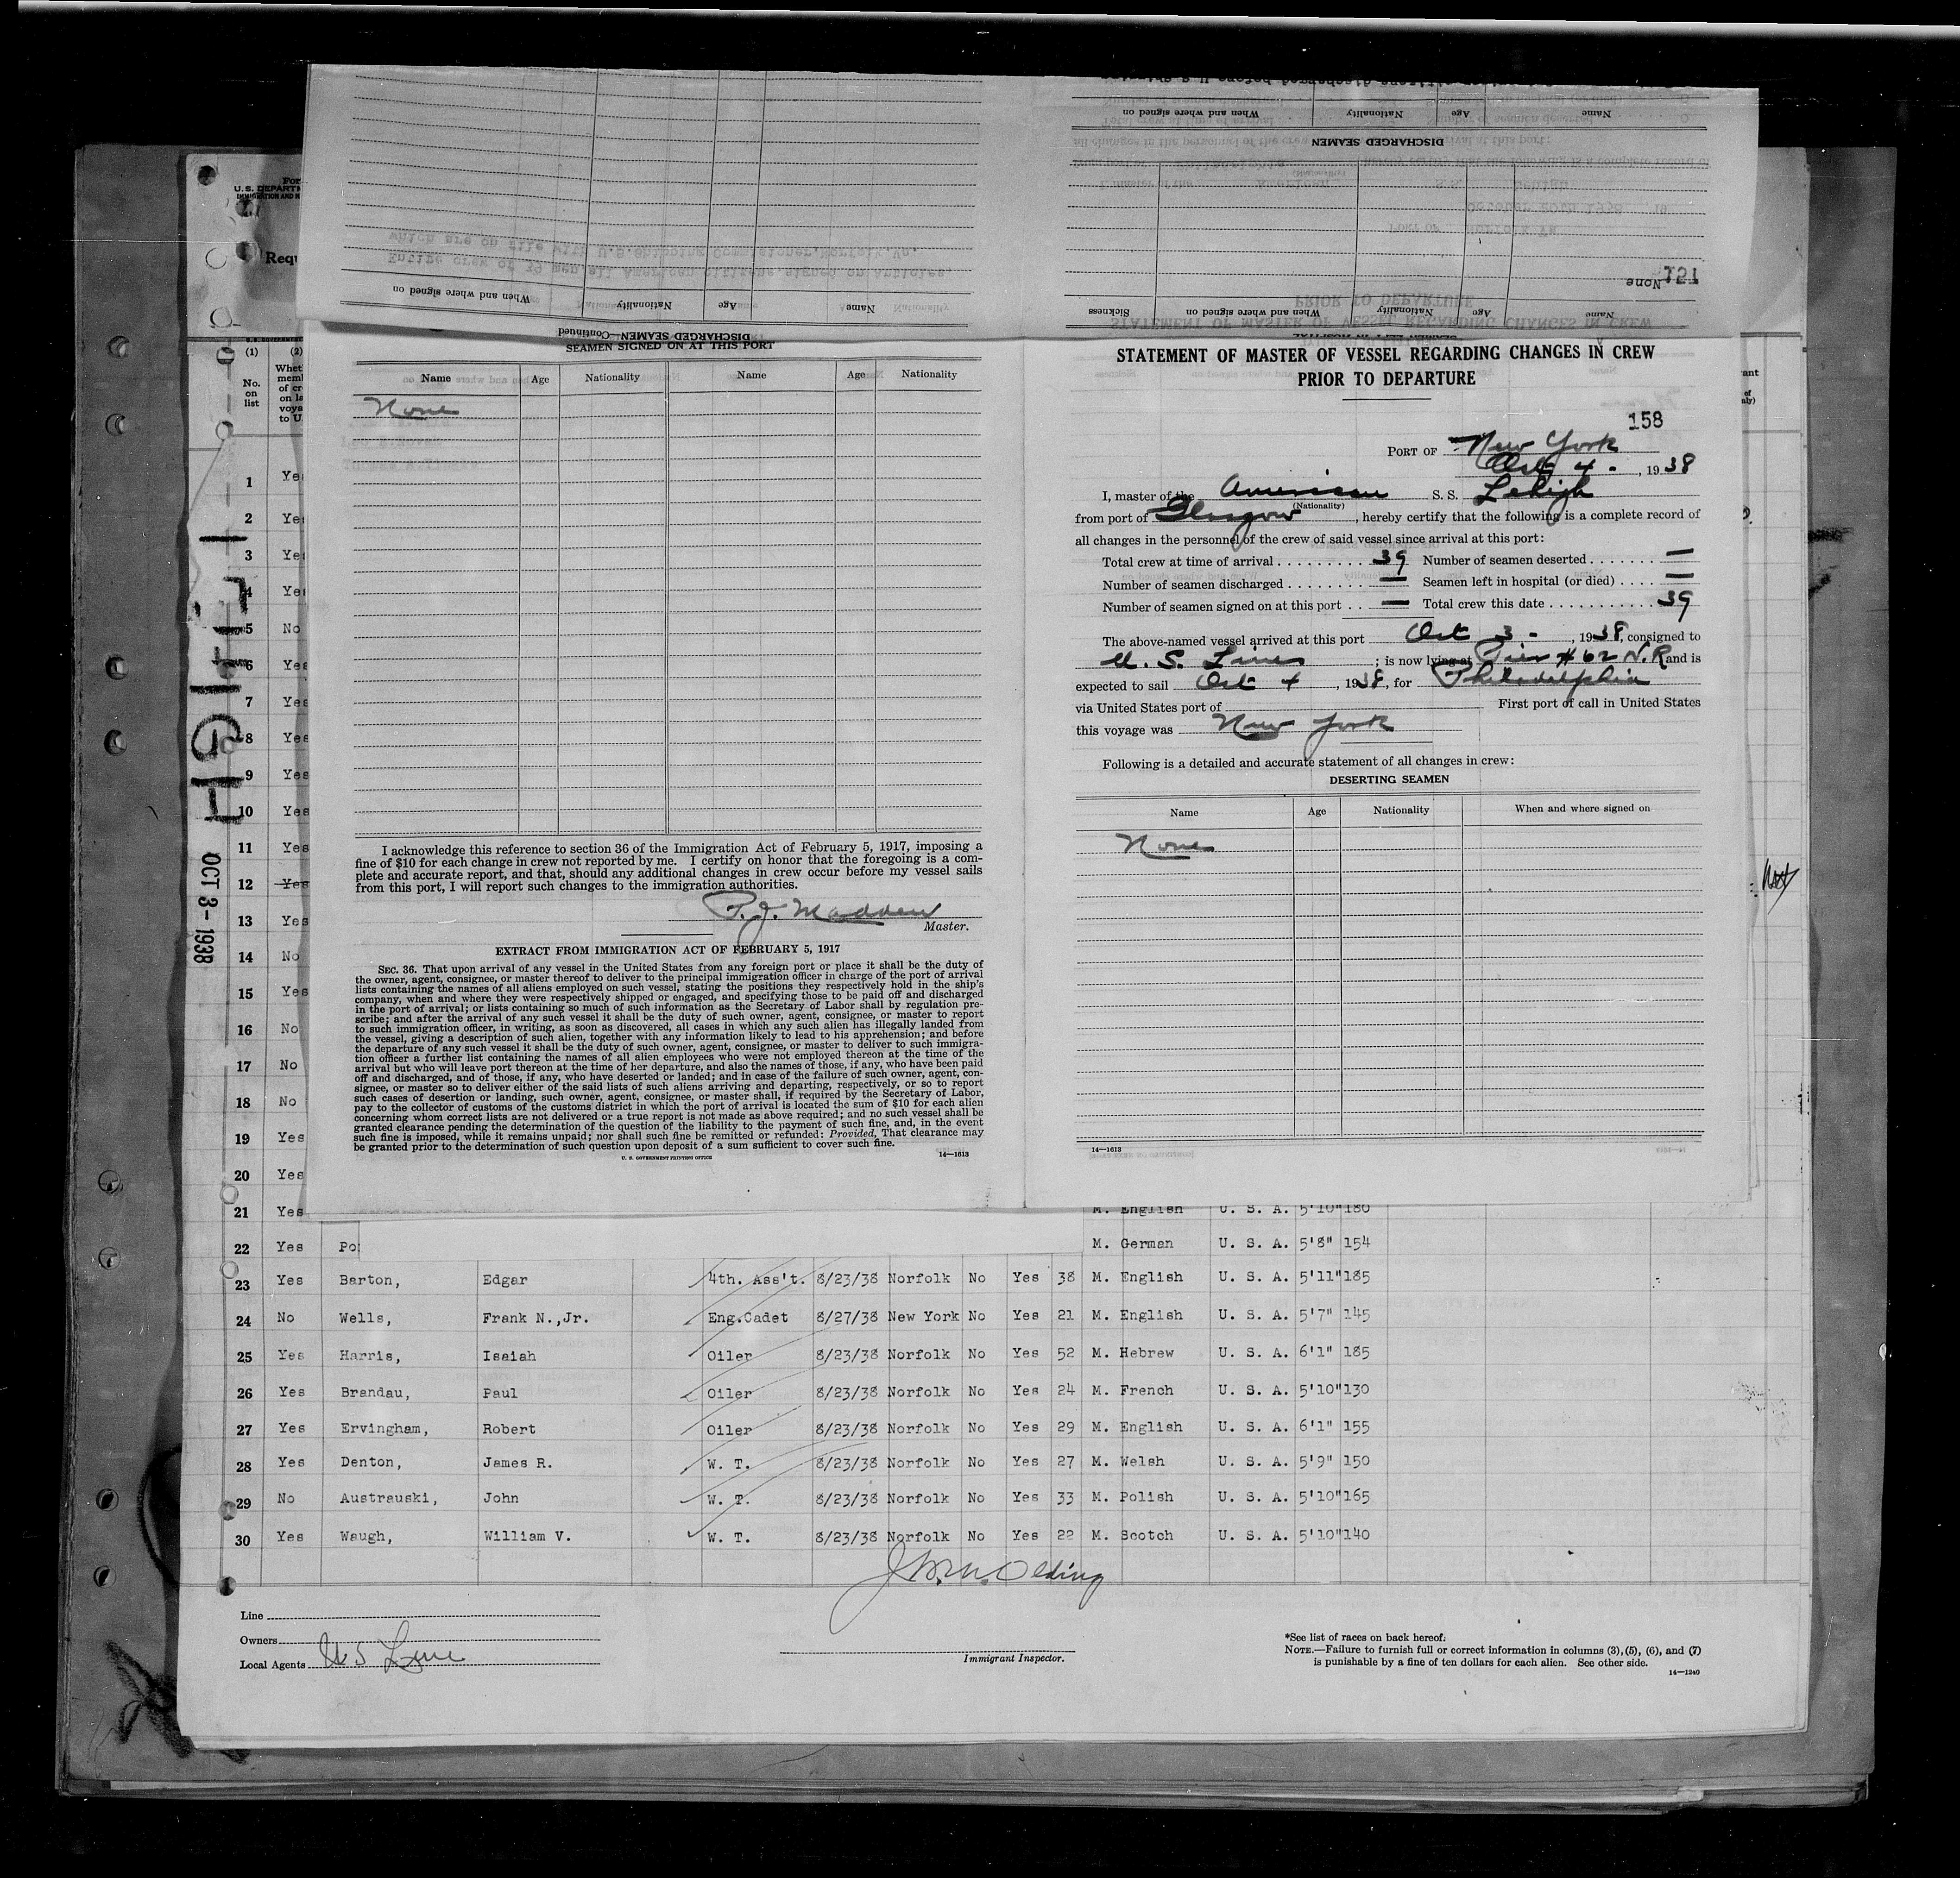 For
U.S. DEPARTM
IMMIGRATION AND N
Requ
(1)
No.
on
list
(2)
Whet
memb
of cr
on la
voya
to U.
LEHIGH
OCT 3-1938
1 Yes
2 Yes
3 Yes
4 Yes
5 No
6 Yes
7 Yes
8 Yes
9 Yes
10 Yes
11 Yes
12 Yes
13 Yes
14 No
15 Yes
16 No
17 No
18 No
19 Yes
20 Yes
21 Yes M. English U. S. A. 5'10"180
22 Yes Po M. German U. S. A. 5'8" 154
23 Yes Barton, Edgar 4th. Ass't. 8/23/38 Norfolk No Yes 38 M. English U. S. A. 5'11"185
24 No Wells, Frank N.,Jr. Eng.Cadet 8/27/38 New York No Yes 21 M. English U. S. A. 5'7" 145
25 Yes Harris, Isaiah Oiler 8/23/38 Norfolk No Yes 52 M. Hebrew U. S. A. 6'1" 185
26 Yes Brandau, Paul Oiler 8/23/38 Norfolk No Yes 24 M. French U. S. A. 5'10"130
27 Yes Ervingham, Robert Oiler 8/23/38 Norfolk No Yes 29 M. English U. S. A. 6'1" 155
28 Yes Denton, James R. W. T. 8/23/38 Norfolk No Yes 27 M. Welsh U. S. A. 5'9" 150
29 No Austrauski, John W. T. 8/23/38 Norfolk No Yes 33 M. Polish U. S. A. 5'10"165
30 Yes Waugh, William V. W. T. 8/23/38 Norfolk No Yes 22 M. Scotch U. S. A. 5'10"140
Line
Owners
Local Agents U S Line
Immigrant Inspector.
*See list of races on back hereof.
NOTE.—Failure to furnish full or correct information in columns (3), (5), (6), and (7)
is punishable by a fine of ten dollars for each alien. See other side.
14—1240
DISCHARGED SEAMEN—Continued
Name Age Nationality When and where signed on
Entire crew of 39 men all American citizens signed on Articles
which are on file with U.S.Shipping Commissioner,Norfolk,Va.
DISCHARGED SEAMEN
Name Age Nationality When and where signed on
Name Age Nationality When and where signed on Sickness
None
157
SEAMEN SIGNED ON AT THIS PORT
Name Age Nationality Name Age Nationality
None
I acknowledge this reference to section 36 of the Immigration Act of February 5, 1917, imposing a
fine of $10 for each change in crew not reported by me. I certify on honor that the foregoing is a com-
plete and accurate report, and that, should any additional changes in crew occur before my vessel sails
from this port, I will report such changes to the immigration authorities.
P. J. Madden
Master.
EXTRACT FROM IMMIGRATION ACT OF FEBRUARY 5, 1917
SEC. 36. That upon arrival of any vessel in the United States from any foreign port or place it shall be the duty of
the owner, agent, consignee, or master thereof to deliver to the principal immigration officer in charge of the port of arrival
lists containing the names of all aliens employed on such vessel, stating the positions they respectively hold in the ship's
company, when and where they were respectively shipped or engaged, and specifying those to be paid off and discharged
in the port of arrival; or lists containing so much of such information as the Secretary of Labor shall by regulation pre-
scribe; and after the arrival of any such vessel it shall be the duty of such owner, agent, consignee, or master to report
to such immigration officer, in writing, as soon as discovered, all cases in which any such alien has illegally landed from
the vessel, giving a description of such alien, together with any information likely to lead to his apprehension; and before
the departure of any such vessel it shall be the duty of such owner, agent, consignee, or master to deliver to such immigra-
tion officer a further list containing the names of all alien employees who were not employed thereon at the time of the
arrival but who will leave port thereon at the time of her departure, and also the names of those, if any, who have been paid
off and discharged, and of those, if any, who have deserted or landed; and in case of the failure of such owner, agent, con-
signee, or master so to deliver either of the said lists of such aliens arriving and departing, respectively, or so to report
such cases of desertion or landing, such owner, agent, consignee, or master shall, if required by the Secretary of Labor,
pay to the collector of customs of the customs district in which the port of arrival is located the sum of $10 for each alien
concerning whom correct lists are not delivered or a true report is not made as above required; and no such vessel shall be
granted clearance pending the determination of the question of the liability to the payment of such fine, and, in the event
such fine is imposed, while it remains unpaid; nor shall such fine be remitted or refunded: Provided, That clearance may
be granted prior to the determination of such question upon deposit of a sum sufficient to cover such fine.
U. S. GOVERNMENT PRINTING OFFICE 14—1613
STATEMENT OF MASTER OF VESSEL REGARDING CHANGES IN CREW
PRIOR TO DEPARTURE
158
PORT OF New York
Oct 4 - , 1938
I, master of the American S. S. Lehigh
(Nationality)
from port of Glasgow, hereby certify that the following is a complete record of
all changes in the personnel of the crew of said vessel since arrival at this port:
Total crew at time of arrival 39 Number of seamen deserted —
Number of seamen discharged — Seamen left in hospital (or died) —
Number of seamen signed on at this port — Total crew this date 39
The above-named vessel arrived at this port Oct 3 - , 1938, consigned to
U. S. Lines ; is now lying at Pier # 62 N. R and is
expected to sail Oct 4 , 1938, for Philadelphia
via United States port of First port of call in United States
this voyage was New York
Following is a detailed and accurate statement of all changes in crew:
DESERTING SEAMEN
Name Age Nationality When and where signed on
None
14—1613